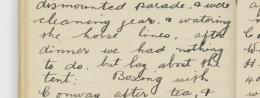 dismounted parade. & was
cleaning gear. & watering
the horse lines, after
dinner we had nothing
to do. but lay about the
tent. Boxing with
Conway after tea, &